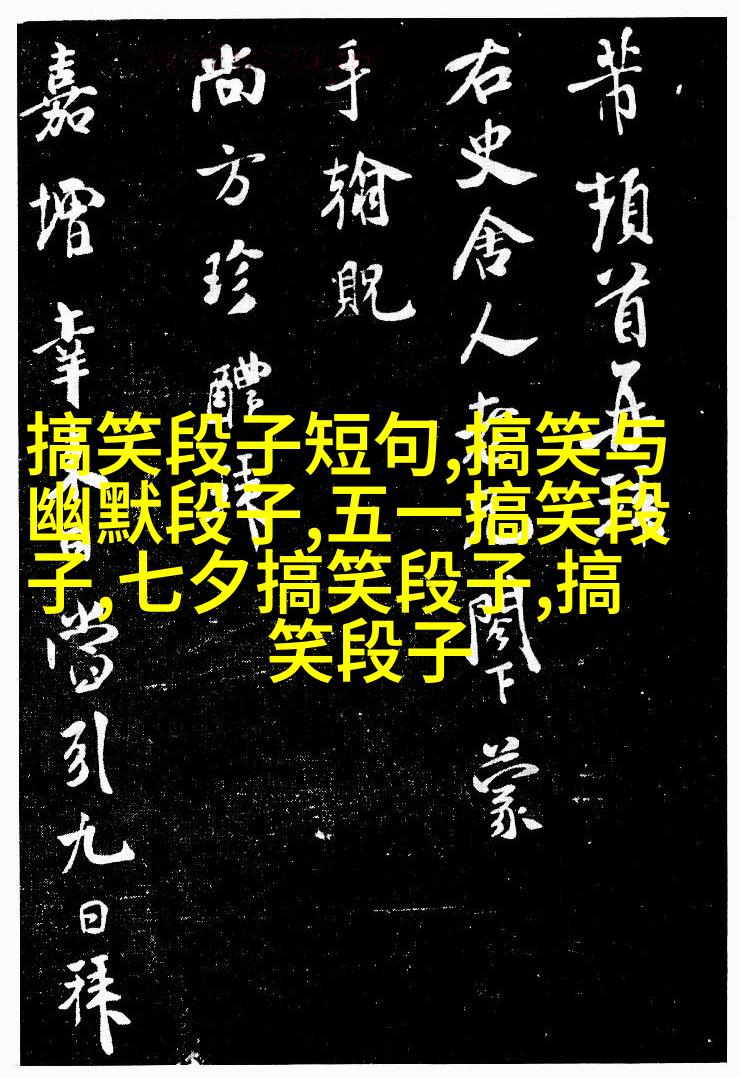 芾頓首再
右史舍人閣下蒙
手翰貺
尚方珍醴
嘉增幸當引九日拜
搞笑段子短句,搞笑与
幽默段子,五一搞笑段
子,七夕搞笑段子,搞
笑段子